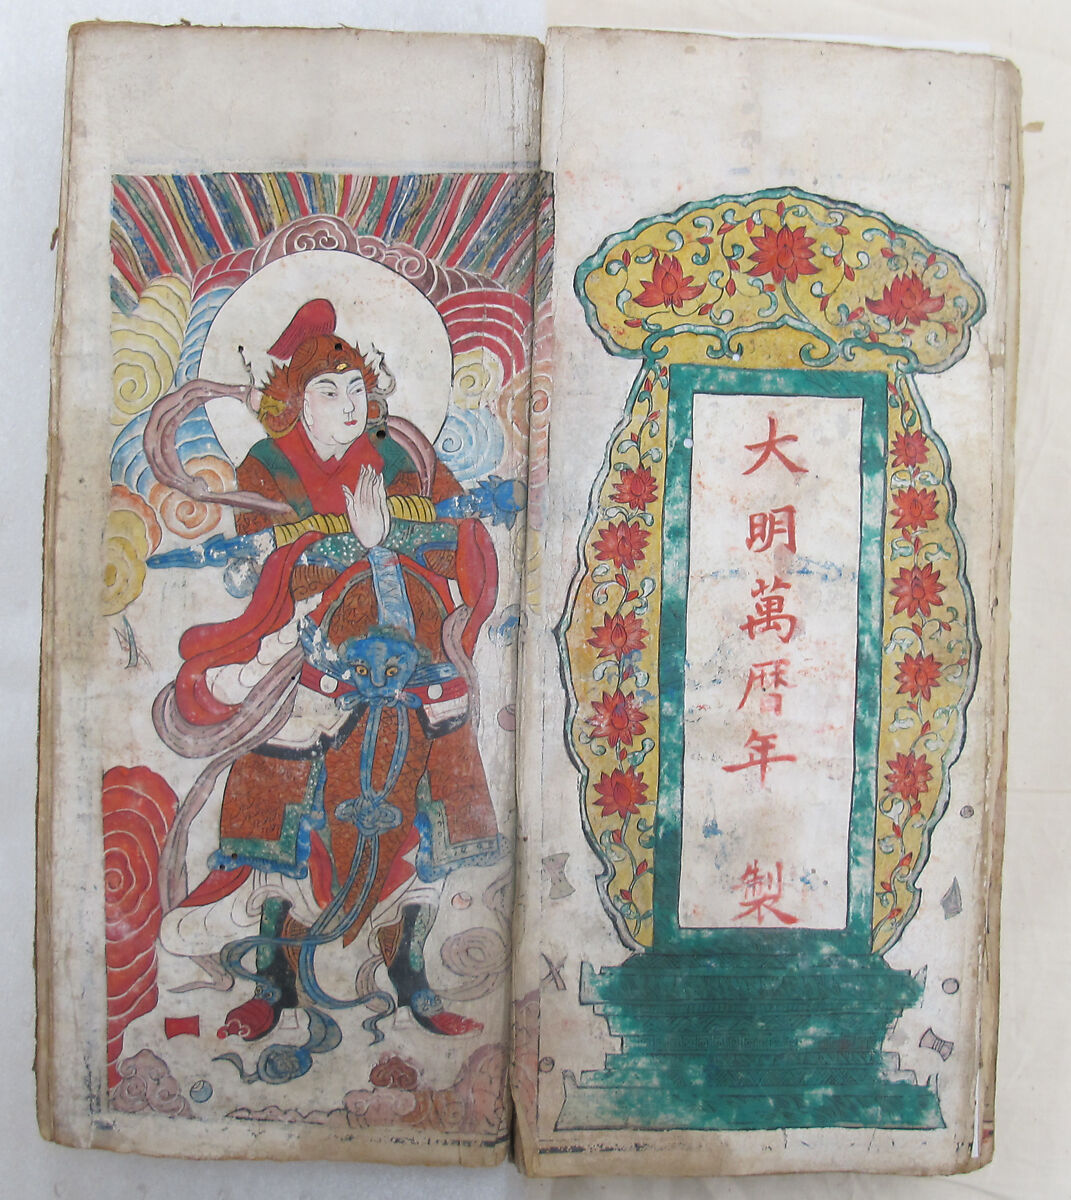 大明萬暦年 製